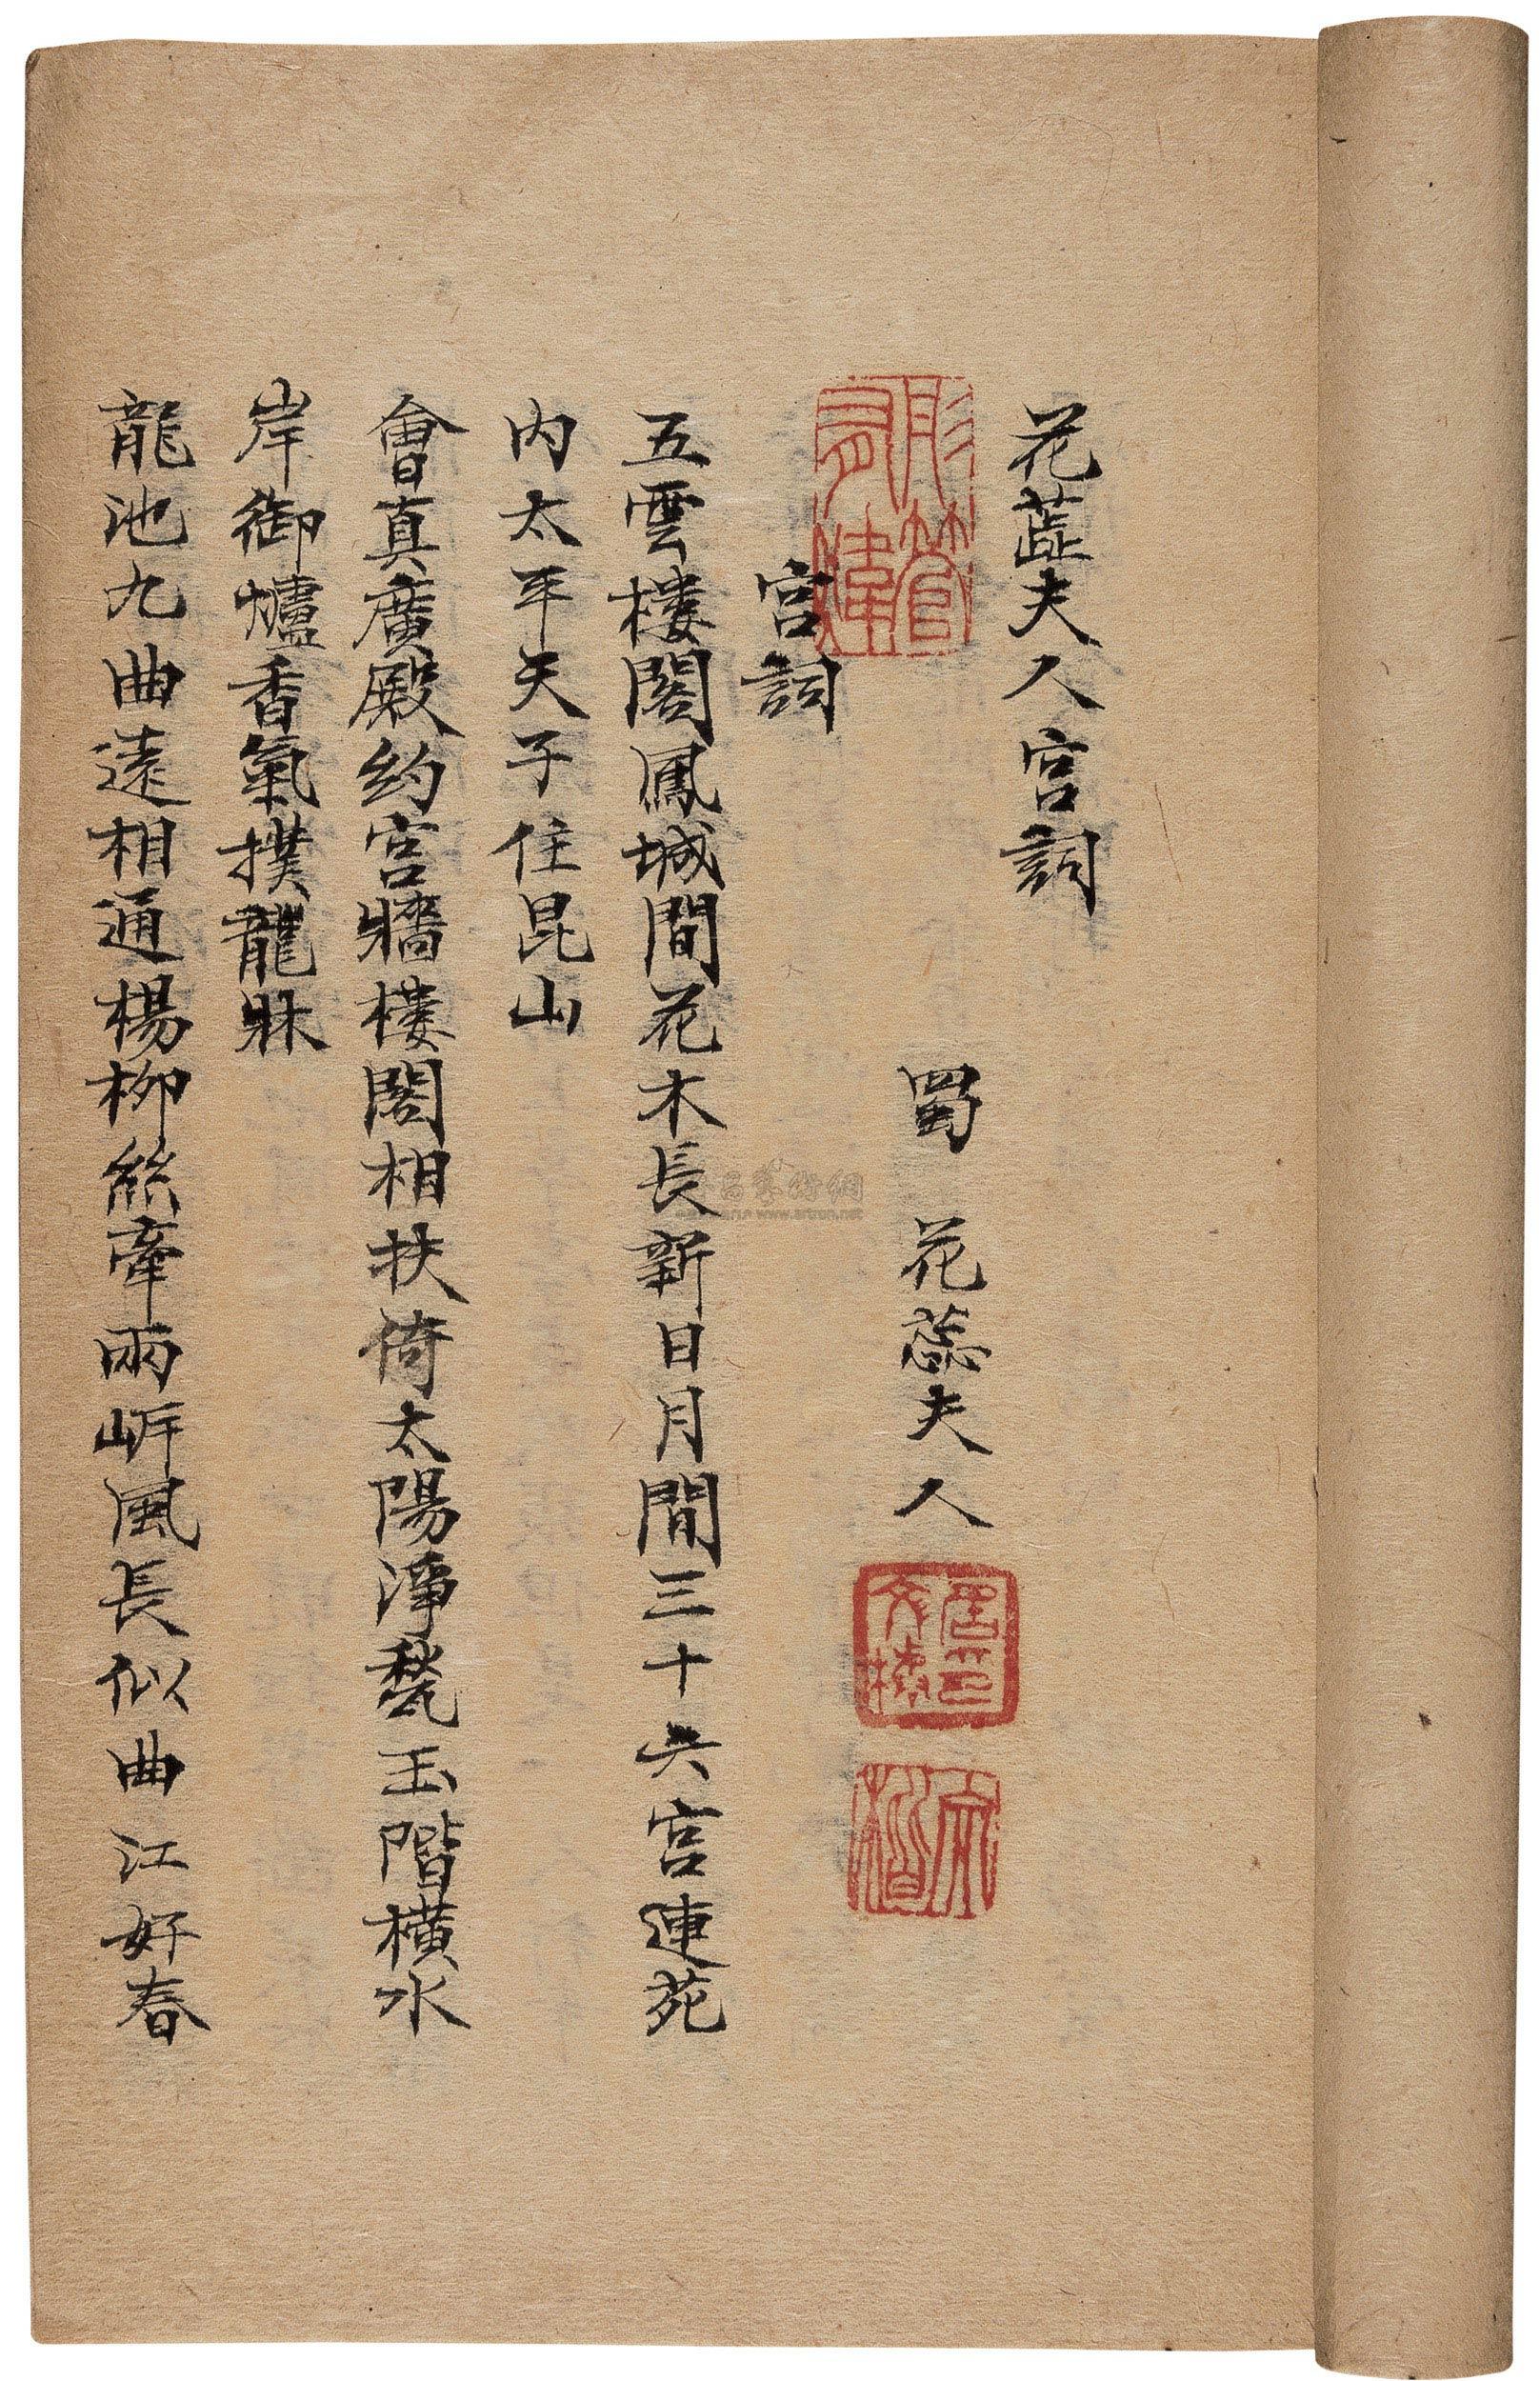 花蕋夫人宮詞
蜀 花蕊夫人
宮詞
五雲樓閣鳳城間花木長新日月閒三十六宮連苑
內太平天子住昆山
會真廣殿約宮牆樓閣相扶倚太陽淨甃玉階橫水
岸御爐香氣撲龍牀
龍池九曲遠相通楊柳絲牽兩岍風長似曲江好春
www.artron.net